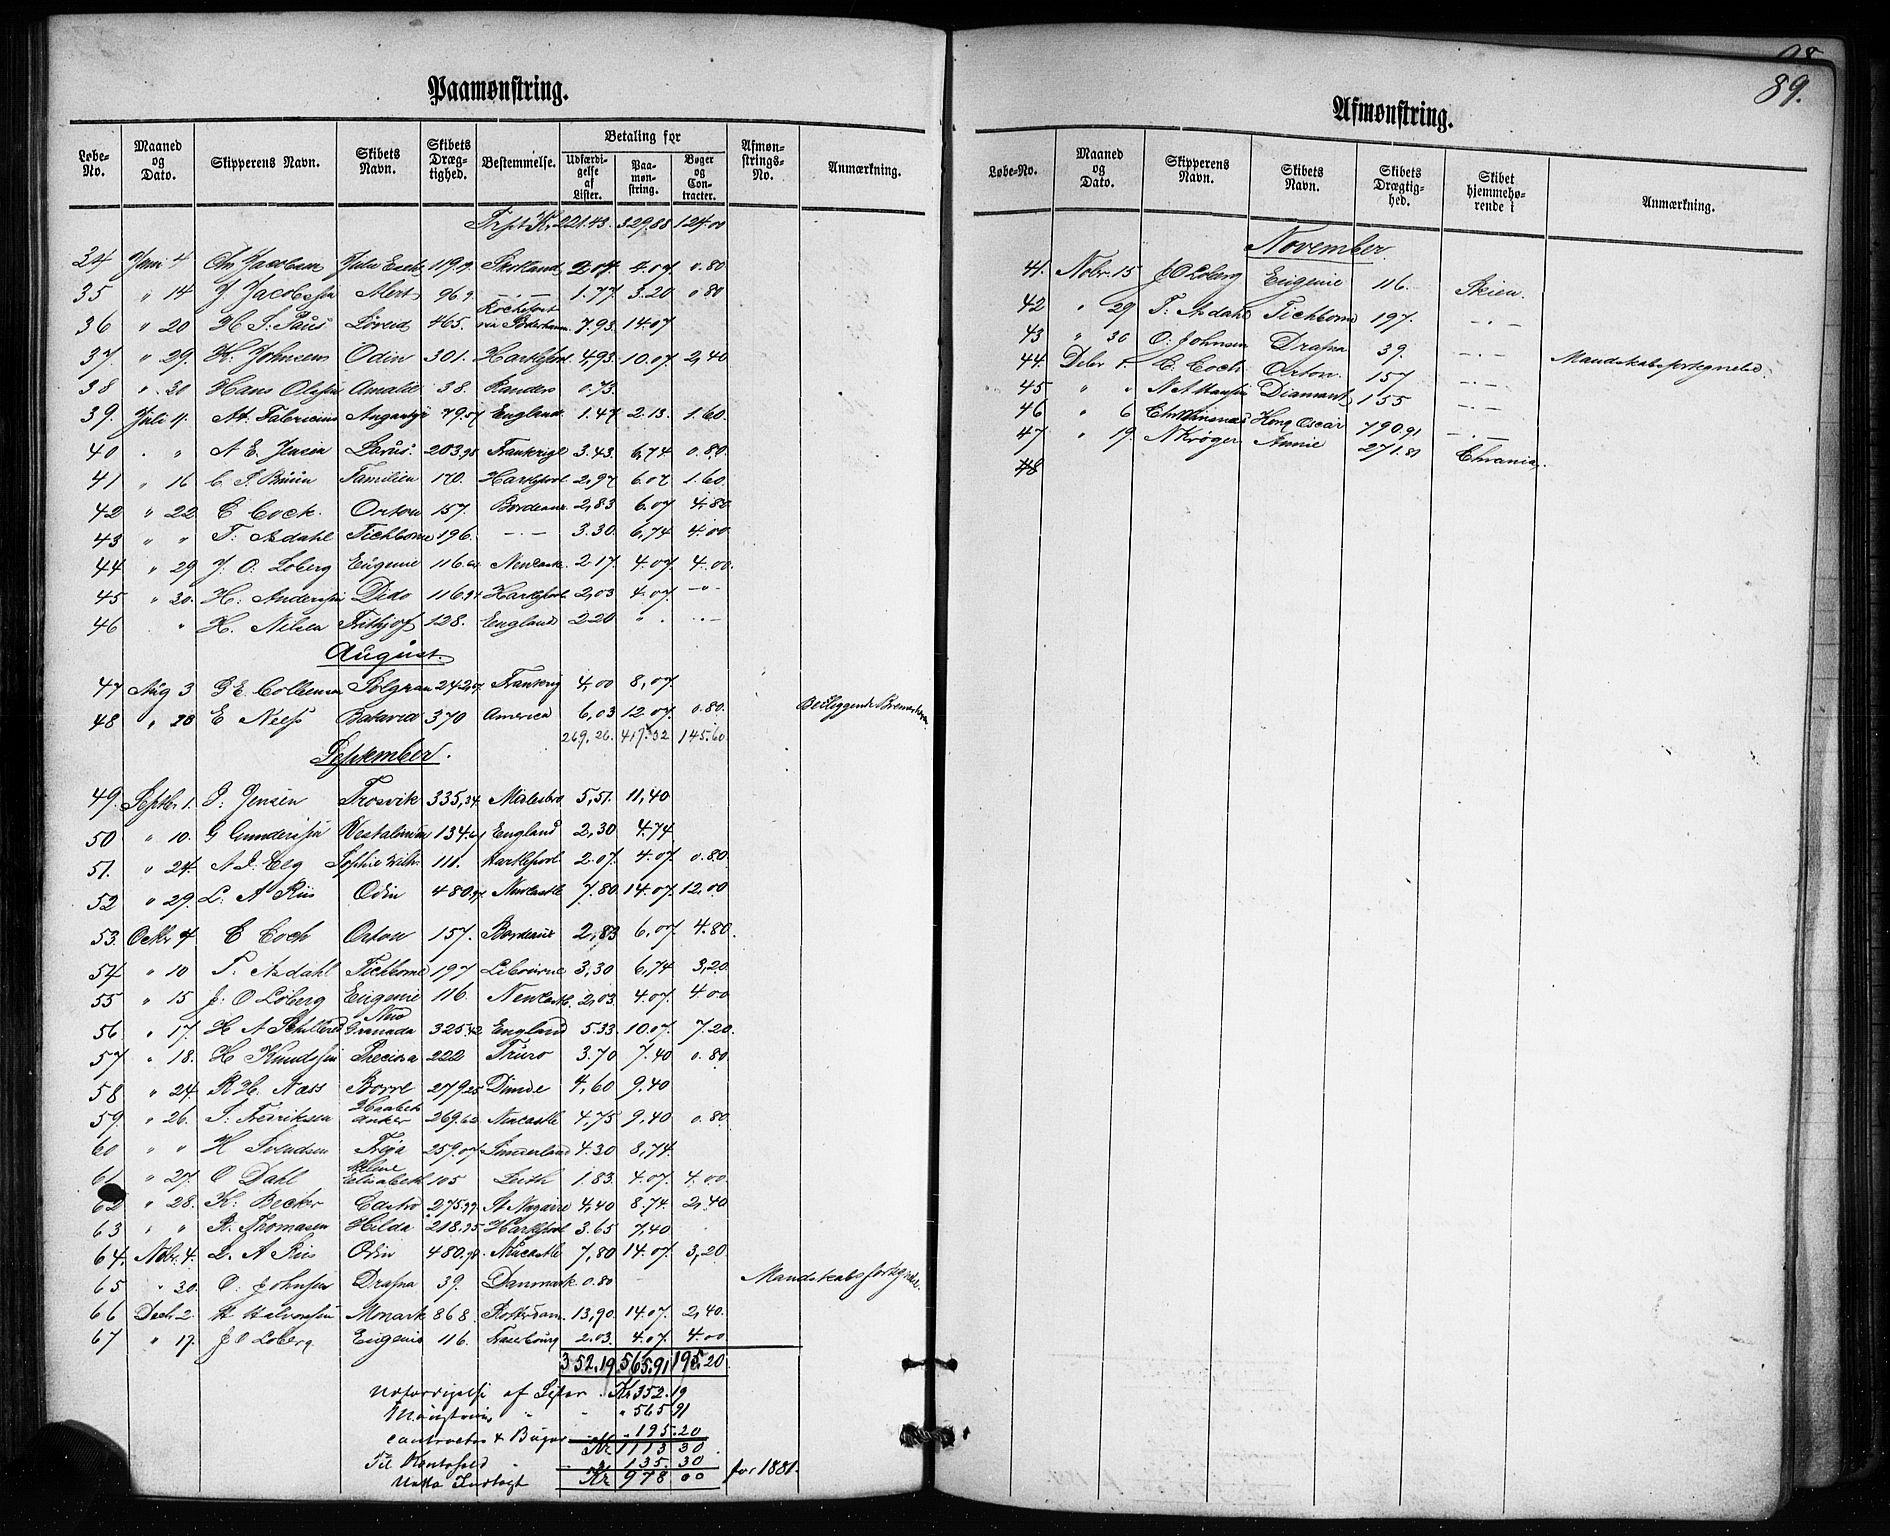 98
89.
Paamønstring.
Løbe-No. Maaned og Dato. Skipperens Navn. Skibets Navn. Skibets Dræg-tighed. Bestemmelse. Betaling for Udfærdi-gelse af Lister. Paa-møn-string. Bøger og Con-tracter. Afmøn-strings-No. Anmærkning.
221.43. 329.88 124.00
34 Juni 4 Chr Jacobsen 119.9 Skotland 2.07 4.07 0.80
35 " 14 J Jacobsen Alert 96.9 —.— 1.77 3.20 0.80
36 " 20 H. S. Paus Løveid 465. Rochefort 7.93. 14.07
37 " 29. K. Johnsen Odin 301. Hartlepool 4,93. 10.07 2,40
38 " 30 Hans Olsen Amalie 38. Randers 0.73.
39. Juli 11. 79.57 England 1.47 2.13. 1.60.
40 . " A E. Jensen Larus. 203.98 Frankrige 3.43. 6,74 0.80
41 " 16 C. P. Bruun Familien 170. Hartlepool 2,97 6.07 1.60
42 " 22 E Cock. Orton 157. Bordeaux 2,83 6.07 4.80
43 " " T. Asdahl Tichborne 196. —.— 3.30. 6,74 4.00
44 " 29 J. O. Løberg Eugenie 116. Newcastle 2.17. 4.07. 4.00.
45 " 30. H. Andersen Dido 116.91 Hartlepool 2,03 4.07. —"—
46 . " H. Nilsen Frithjof 128. England 2.20 " . . . —
August.
47 Aug 3 G E Collinsen Solgran 242.07 Frankrig 4,00 8,07.
48 " 28 E Ness Batavia 370 America 6,03 12.07. 0.80.
269,26. 417.32 145.60
September.
49. Septbr 1. J. Jensen Trosvik 335,34 Malesbro 5,51. 11,40
50 " 10. G Gundersen Vestalinden 134.61 England 2,30 4.74
51. " 24. A. J. Elg Sophie Wilh. 111. Hartlepool 2.07. 4.07. 0.80.
52 " 29. L. A Riis Odin 480.97 Newcastle 7.80. 14.07. 12.00
53. Octbr 4 E Coch Orton 157. Bordeaux 2,83 6,07. 4.80.
54 " 10 T. Asdahl Tichborne 197 Libourne 3,30 6,74 3,20
55 " 15 J. O Løberg Eugenie 116. Newcastl. 2,03. 4.07. 4.00
56 " 17. H A Schilbred New Granada 325.42 England 5.33. 10.07. 7.20.
57 " 18. H Knudsen Precioza 222 Truro 3.70 7.40 0.80
58 " 24. R H. Næss Borre 279.25 Dunde 4,60 9.40
59 " 26. S. Fredriksen Anker 269.62 Newcastle 4.75 9,40 0.80
60 " " H Svendsen Freja 259.07 Sunderland 4.30 8,74
61 " 27. O Dahl Elisabeth 105 Leith 1.83. 4.07. 4.00.
62 " 28. K. Becker Castro 275.99 St Nazaire 4,40 8.74. 2,40
63 " " R. Thomasen Hilda 218.95 Hartlepool 3.65 7,40
64. Nobr. 4. L. A Riis Odin 480.98. Newcastle 7,80 14.07. 3,20
65 " 30. O. Johnsen Drafna 39. Danmark 0.80 Mandskabsfortegnelse.
66 Decbr 2. H Halvorsen Monark 868. Rotterdam 13,90 14.07. 2,40.
67 " 17. J O Løberg Eugenie 116. Fraserbourg 2.03. 4.07. 4.00
352,19 565,91 195.20
Udfærdigelse af Lister Kr 352.19
Mønstring " " 565 91
Contracter & Bøger " 195.20
Kr 1113 30
Til Kontohold " 135. 30
Netto Indtægt Kr 978 00 for 1881.
Afmønstring.
Løbe-No. Maaned og Dato. Skipperens Navn. Skibets Navn. Skibets Drægtig-hed. Skibet hjemmehø-rende i Anmærkning.
November
41. Nobr. 15 J O Løberg Eugenie 116. Skien.
42 " 29 T. Asdahl Tichborne 197. —.—
43 " 30 O. Johnsen Drafna 39. —.— Mandskabsfortegnelse.
44. Debr 1. E. Coch Orton. 157 —.—
45 " " N A Hansen Diamant 155 —.—
46 " 6 Kong Oscar 790.91 —.—
47 " 19. N Krøger Annie 271.81 Chrania.
48